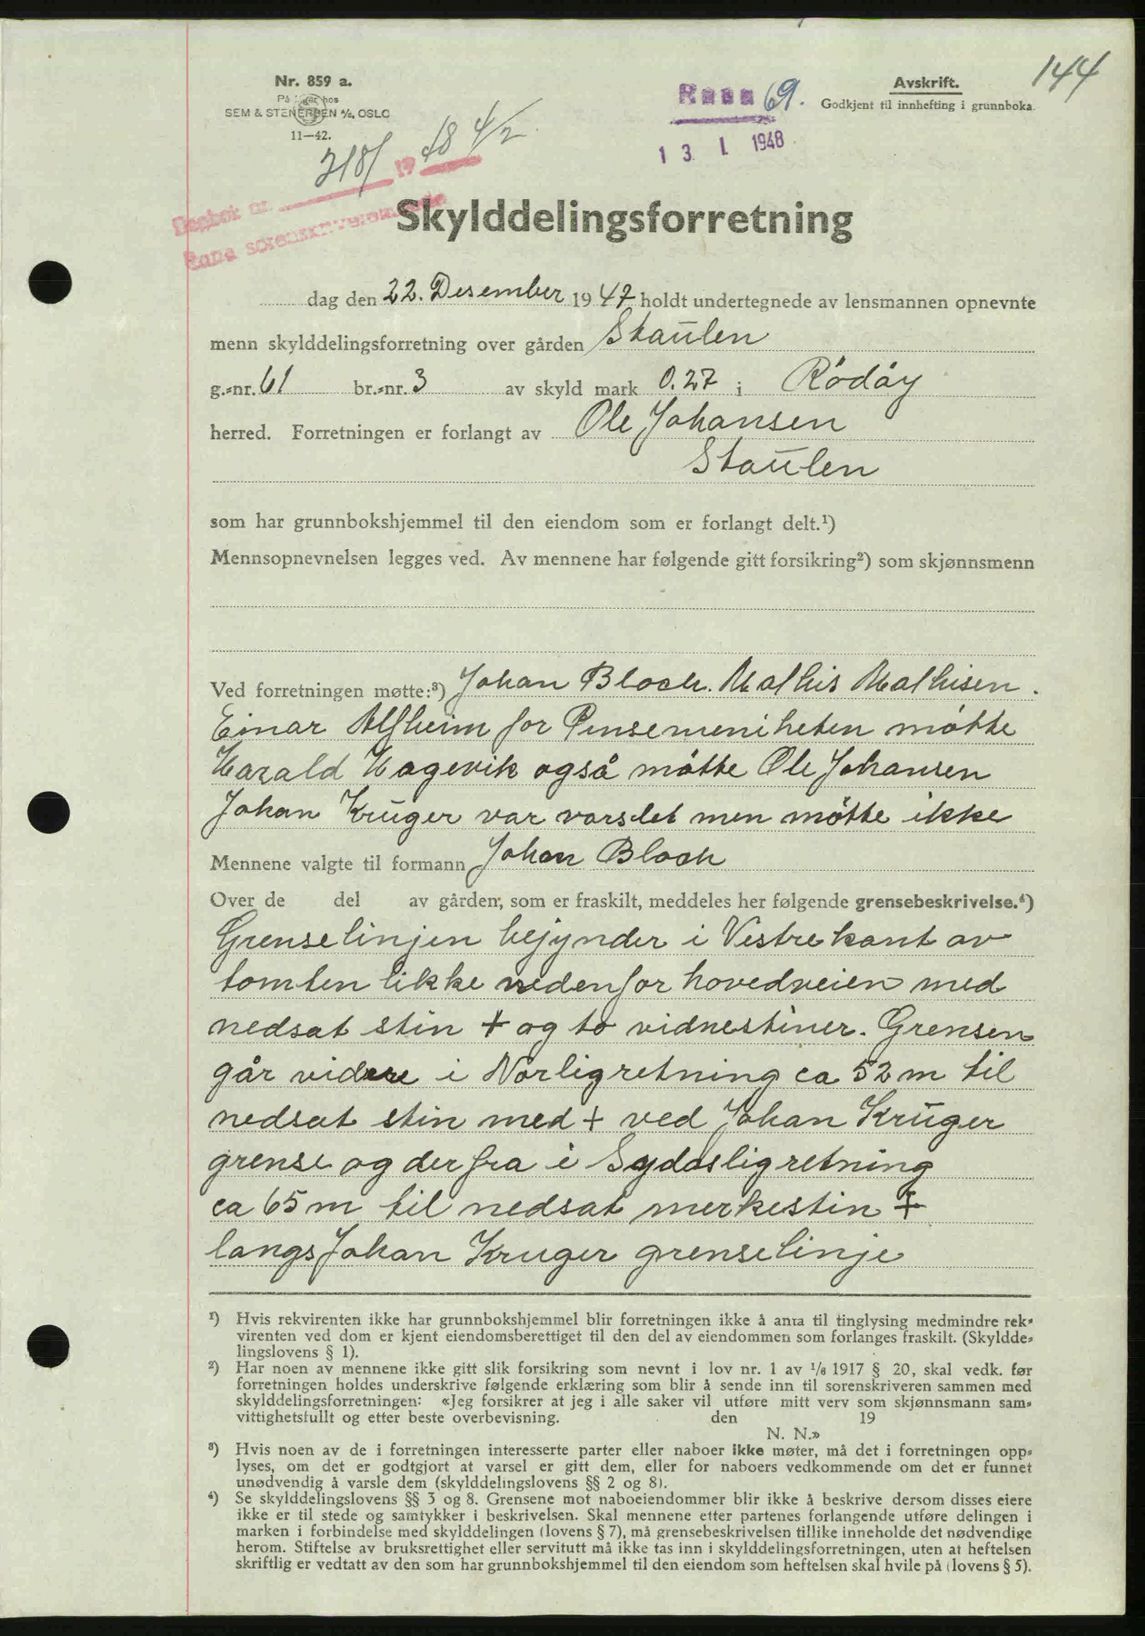 144
Nr. 859 a.
På lager hos
SEM & STENERSEN A/S, OSLO
11—42.
Rana 69.
13 1 1948
Avskrift.
Godkjent til innhefting i grunnboka.
Dagbok nr. 218/ 1948 4/2
Rana sorenskriverembede
Skylddelingsforretning
dag den 22. Desember 1947 holdt undertegnede av lensmannen opnevnte
menn skylddelingsforretning over gården Staulen
g.-nr. 61 br.-nr. 3 av skyld mark 0.27 i Rødøy
herred. Forretningen er forlangt av Ole Johansen
Staulen
som har grunnbokshjemmel til den eiendom som er forlangt delt.¹)
Mennsopnevnelsen legges ved. Av mennene har følgende gitt forsikring²) som skjønnsmenn
Ved forretningen møtte:³) Johan Bloch. Mathis Mathisen.
Einar Alfheim for Pinsemeniheten møtte
Harald Hagevik også møtte Ole Johansen
Johan Krüger var varslet men møtte ikke
Mennene valgte til formann Johan Bloch
Over de del av gården, som er fraskilt, meddeles her følgende grensebeskrivelse.⁴)
Grenselinjen bejynder i Vestre kant av
tomten likke nedenfor hovedveien med
nedsat stin + og to vidnestiner. Grensen
går videre i Nørligretning ca 52 m til
nedsat stin med + ved Johan Krüger
grense og derfra i Sydøsligretning
ca 65 m til nedsat merkestin +
langs Johan Kruger grenselinje
¹) Hvis rekvirenten ikke har grunnbokshjemmel blir forretningen ikke å anta til tinglysing medmindre rek-
virenten ved dom er kjent eiendomsberettiget til den del av eiendommen som forlanges fraskilt. (Skyldde-
lingslovens § 1).
²) Har noen av mennene ikke gitt slik forsikring som nevnt i lov nr. 1 av 1/6 1917 § 20, skal vedk. før
forretningen holdes underskrive følgende erklæring som blir å sende inn til sorenskriveren sammen med
skylddelingsforretningen: «Jeg forsikrer at jeg i alle saker vil utføre mitt verv som skjønnsmann sam-
vittighetsfullt og etter beste overbevisning. den 19
N. N.»
³) Hvis noen av de i forretningen interesserte parter eller naboer ikke møter, må det i forretningen opp-
lyses, om det er godtgjort at varsel er gitt dem, eller for naboers vedkommende om det er funnet
unødvendig å varsle dem (skylddelingslovens §§ 2 og 8).
⁴) Se skylddelingslovens §§ 3 og 8. Grensene mot naboeiendommer blir ikke å beskrive dersom disses eiere
ikke er til stede og samtykker i beskrivelsen. Skal mennene etter partenes forlangende utføre delingen i
marken i forbindelse med skylddelingen (lovens § 7), må grensebeskrivelsen tillike inneholde det nødvendige
herom. Stiftelse av bruksrettighet eller servitutt må ikke tas inn i skylddelingsforretningen, uten at heftelsen
skriftlig er vedtatt av den som har grunnbokshjemmel til den eiendom som heftelsen skal hvile på (lovens § 5).